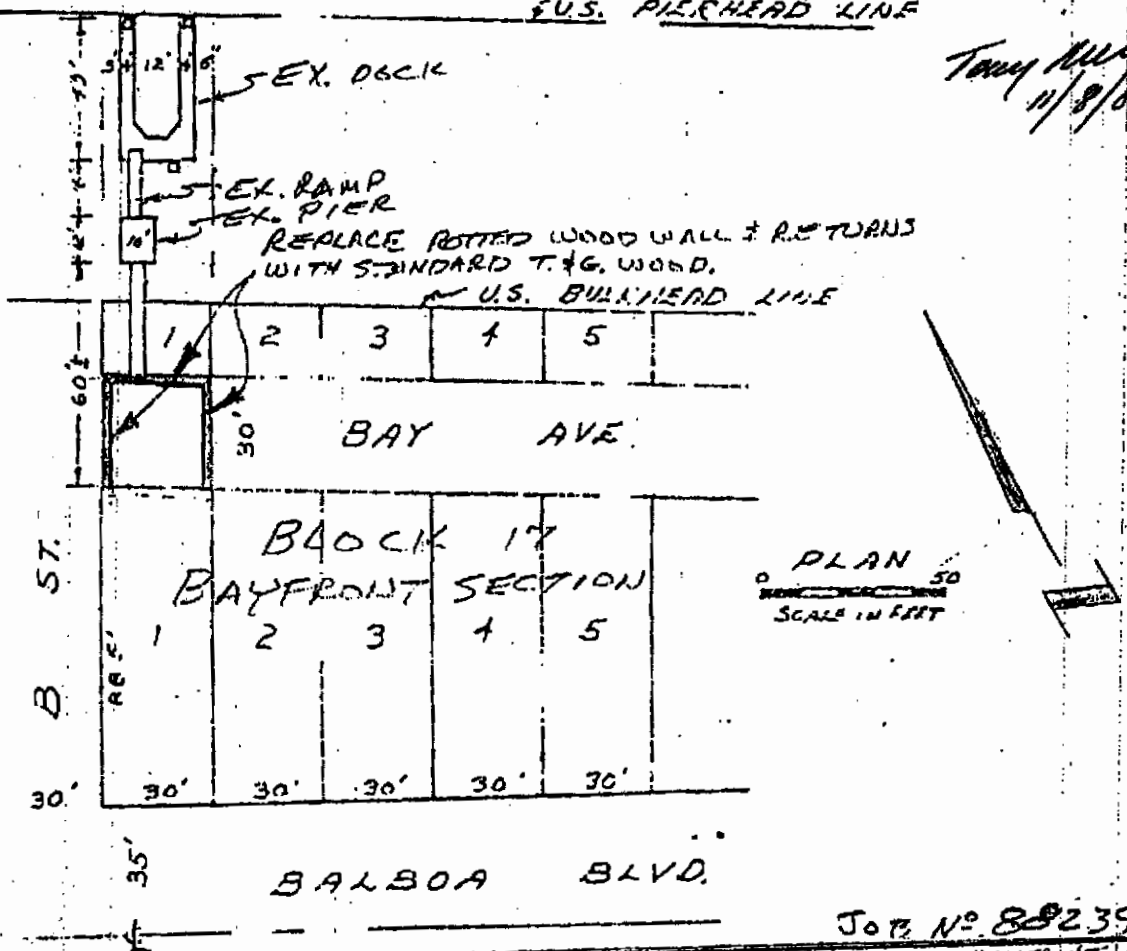 & U.S. PIERHEAD LINE
12'
EX. DOCK
EX. RAMP
EX. PIER
10'
REPLACE ROTTED WOOD WALL & RETURNS
WITH STANDARD T.&G. WOOD.
U.S. BULKHEAD LINE
1 2 3 4 5
60'±
30'
BAY AVE.
BLOCK 17
BAYFRONT SECTION
1 2 3 4 5
B ST.
PLAN
0 50
SCALE IN FEET
30' 30' 30' 30' 30' 30'
35'
BALBOA BLVD.